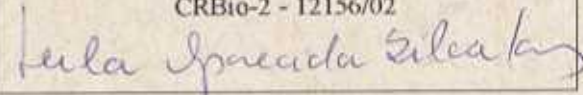 CRBio-2 - 12156/02
Leila Aparecida Silva